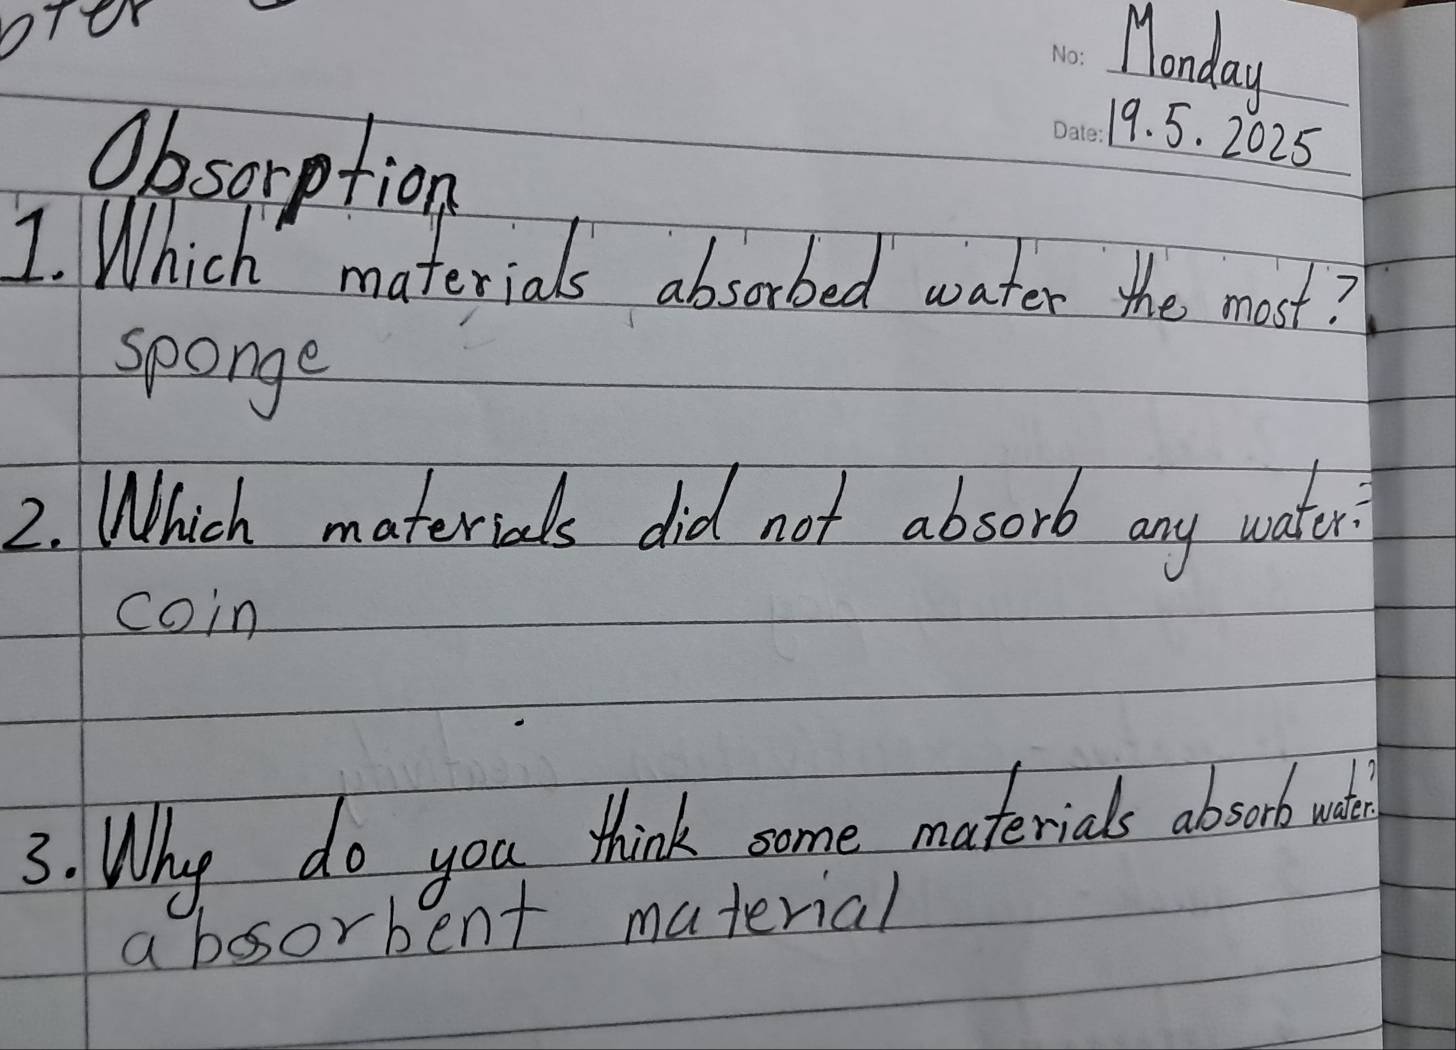 No: Monday
Date: 19.5.2025
Obsorption
1. Which materials absorbed water the most?
sponge
2. Which materials did not absorb any water?
coin
3. Why do you think some materials absorb water?
absorbent material